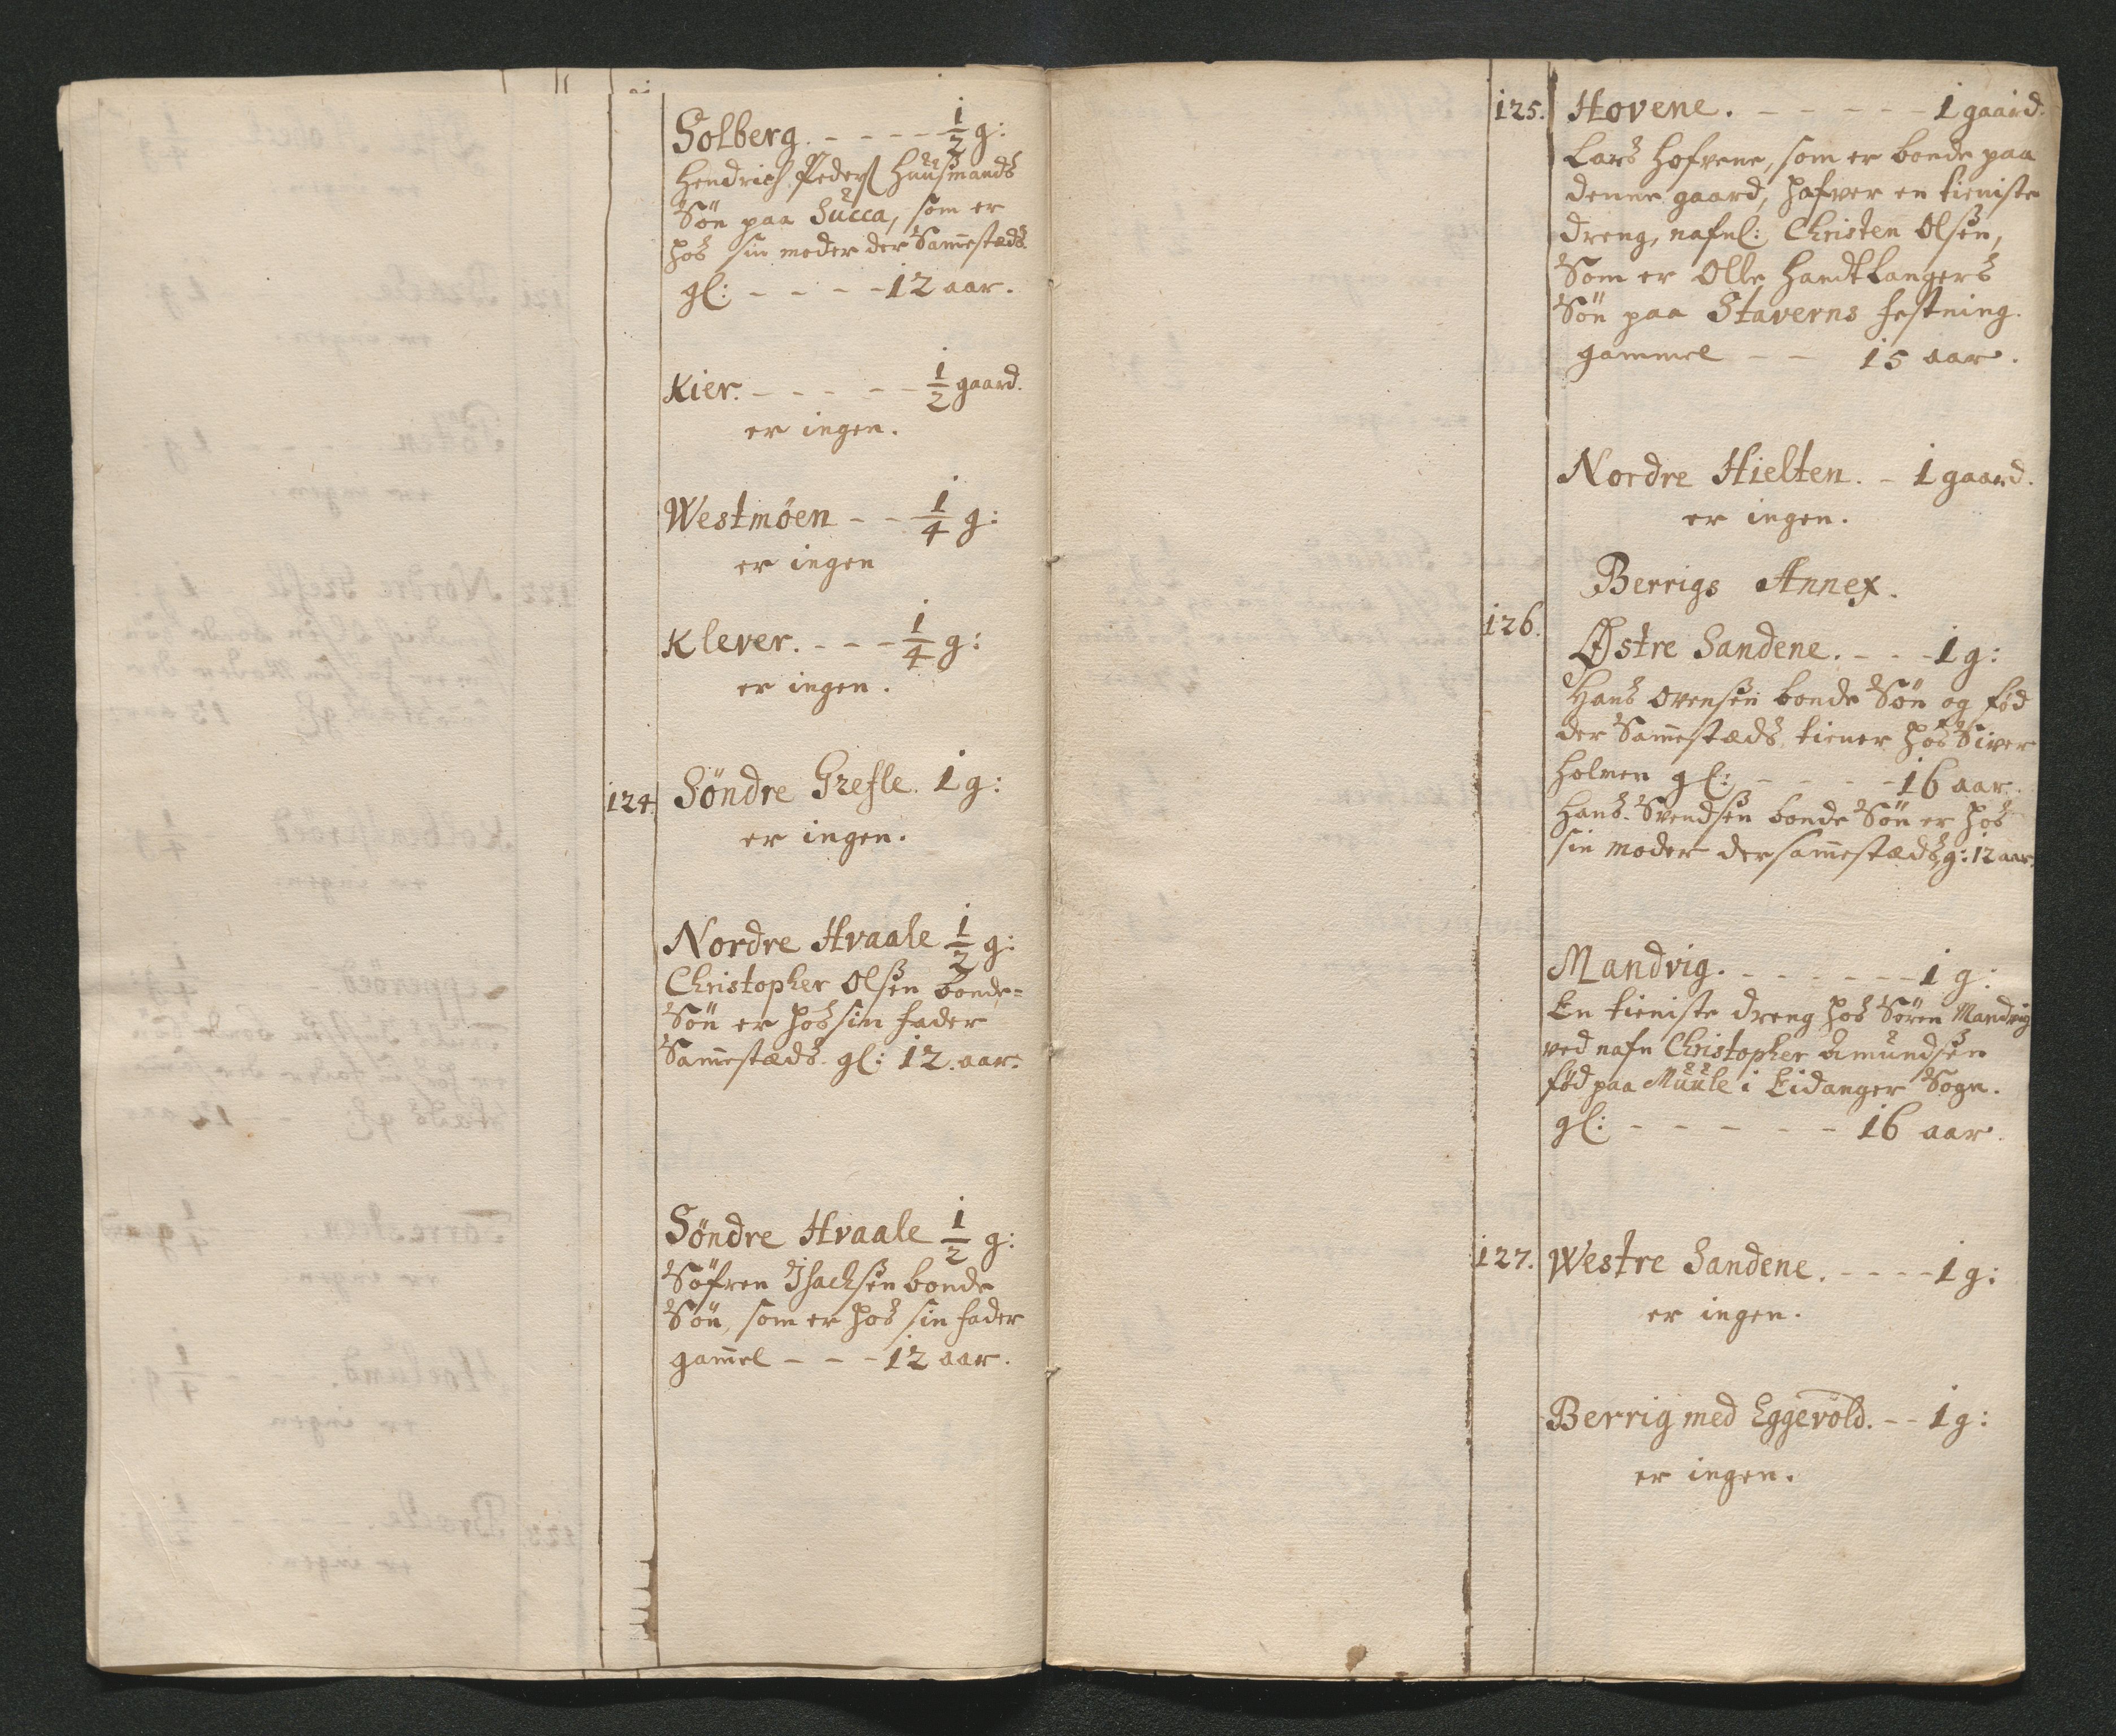 Solberg. - - - - 1/2 g:
Hendrich Peders: Huusmands
Søn paa Succa, som er
hos sin moder der Sam̄estæds.
gl: - - - - 12 aar.
Kier. - - - - - 1/2 gaard.
er ingen.
Westmöen - - 1/4 g:
er ingen
Klever. - - - 1/4 g:
er ingen.
124. Söndre Grefle. 1 g:
er ingen.
Nordre Hvaale 1/2 g:
Christopher Olsen bonde=
Søn er hos sin fader
Sam̄estæds. gl: 12. aar.
Söndre Hvaale 1/2 g:
Söfren Isachsen bonde
Søn, som er hos sin fader
gam̄el - - - 12 aar.
125. Hovene. - - - - - 1 gaard.
Lars Hofvene, som er bonde paa
denne gaard, hafver en tieniste
dreng, nafnl: Christen Olsen,
Som er Olle Handtlangers
Søn paa Staverns festning.
gammel - - 15 aar.
Nordre Hielten. - 1 gaard.
er ingen.
Berrigs Annex.
126. Østre Sandene. - - - 1 g:
Hans Ovensen bonde Søn og fød
der Sam̄estæds, tiener hos Siver
Holmen gl: - - - - 16 aar.
Hans Svendsen bonde Søn er hos
sin moder der sam̄estæds, g: 12 aar.
Mandvig. - - - - - - 1 g:
En tieniste dreng hos Sören Mandvig
ved nafn Christopher Amundsen
fød paa Muule i Eidanger Sogn.
gl: - - - - - 16 aar.
127. Westre Sandene. - - - - 1 g:
er ingen.
Berrig med Eggevold. - - 1 g:
er ingen.